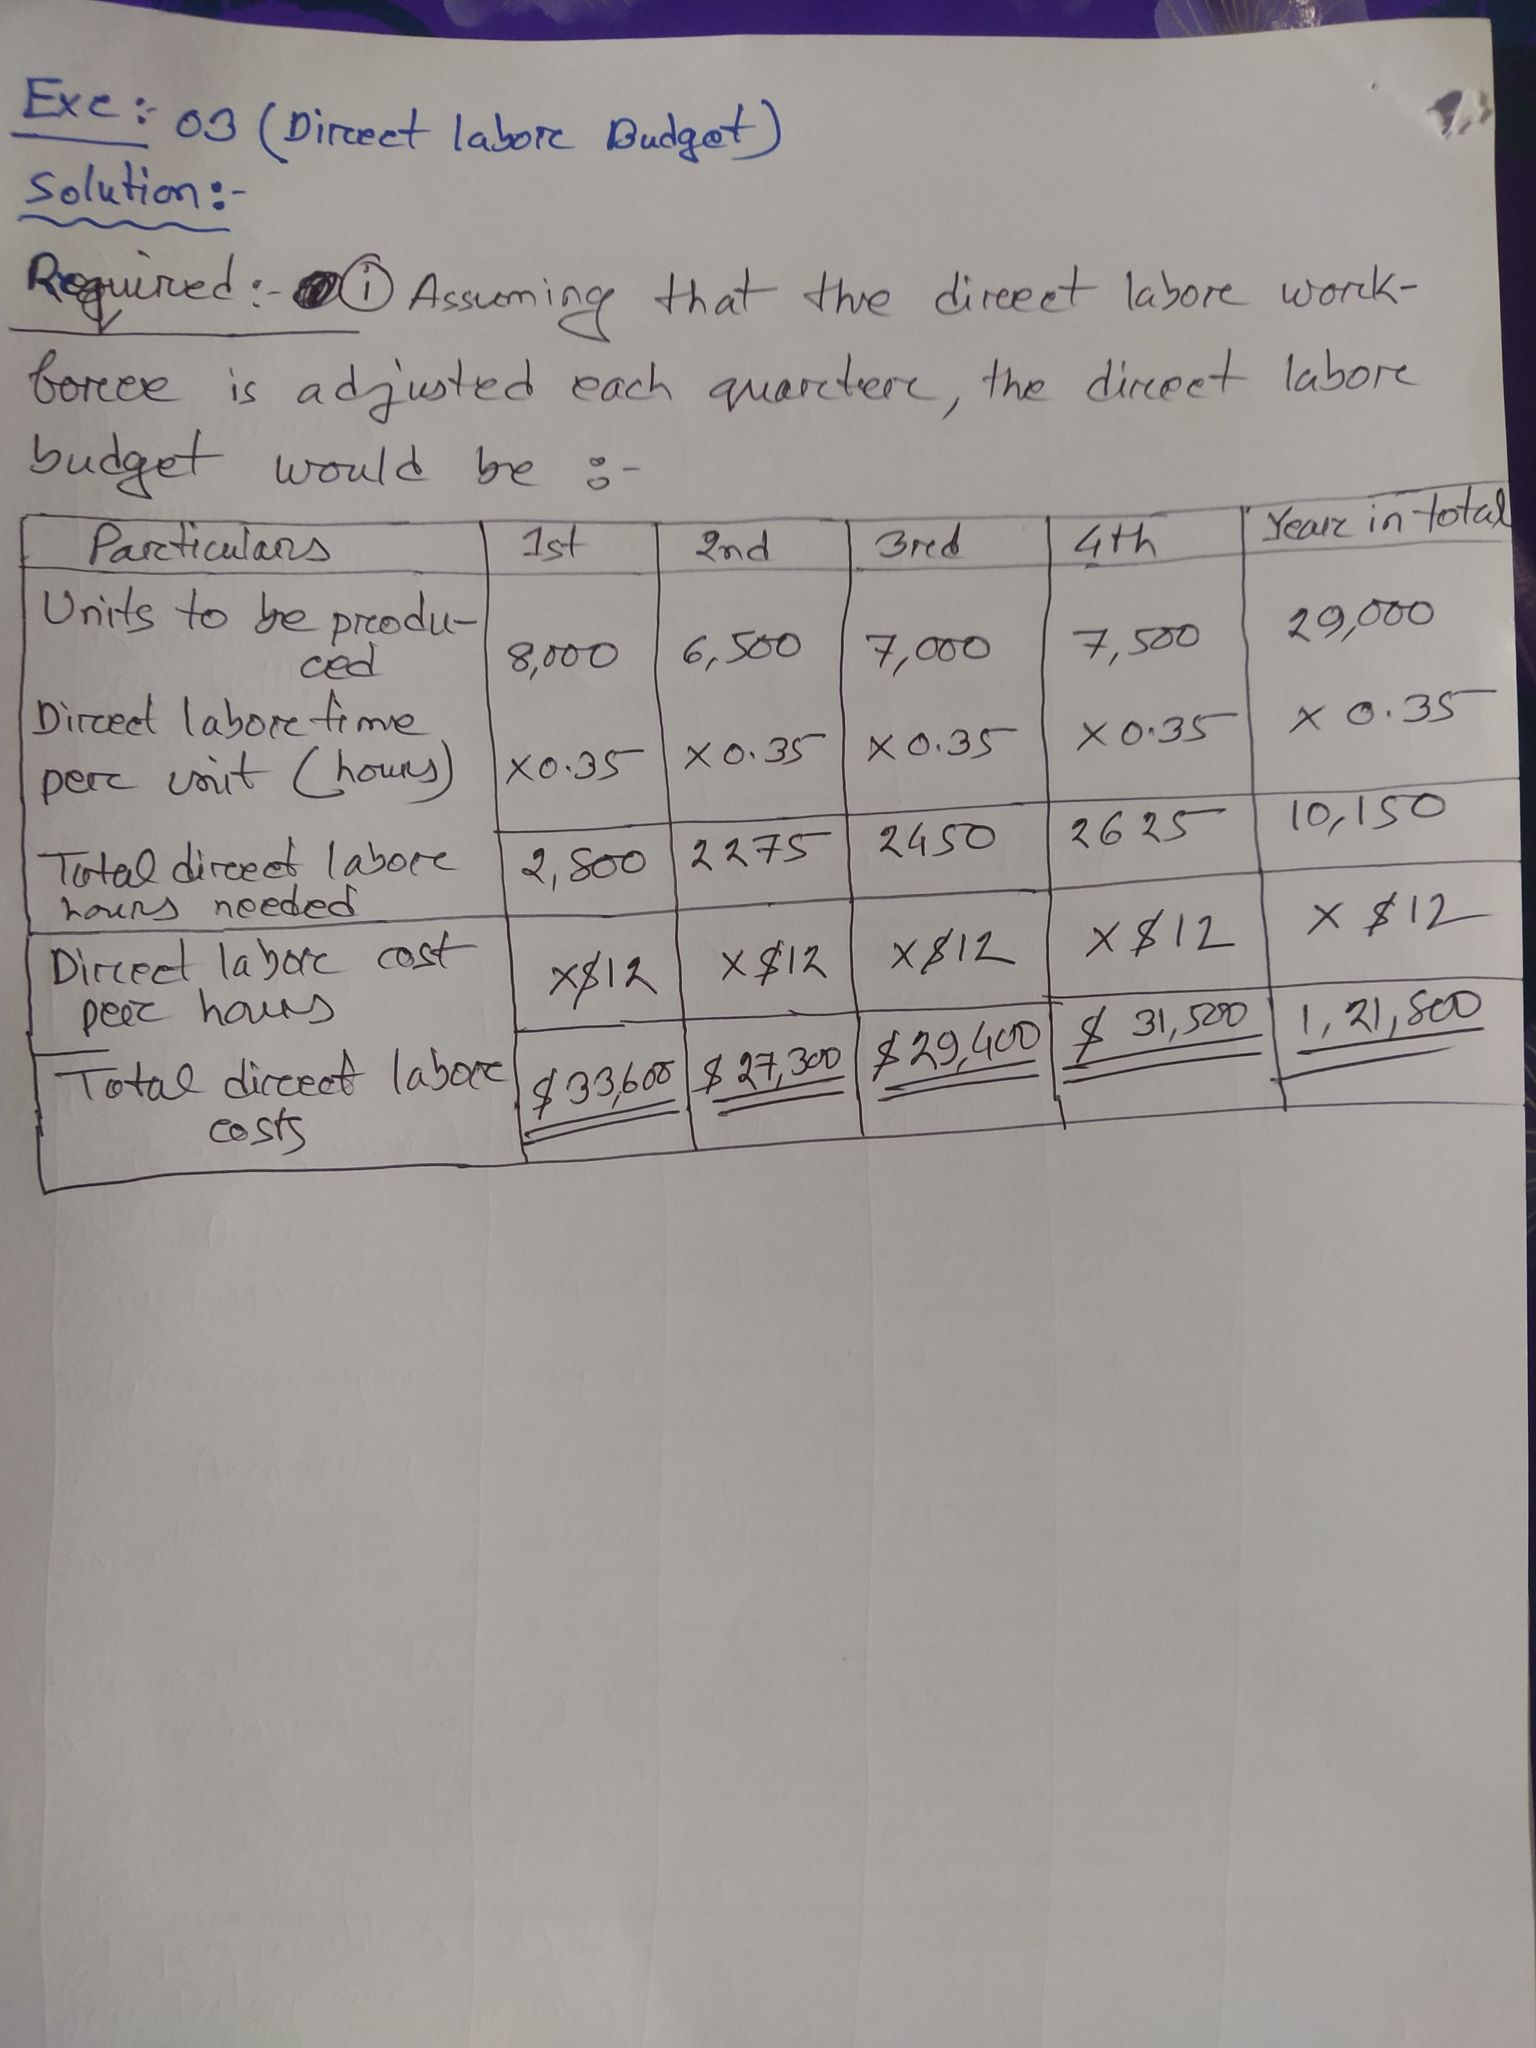 Exe:- 03 (Direct labore Budget)
Solution:-
Required:- (i) Assuming that the direct labore work-
force is adjusted each quarter, the direct labore
budget would be :-
Particulars 1st 2nd 3rd 4th Year in total
Units to be produ-
ced 8,000 6,500 7,000 7,500 29,000
Direct labore time
per unit (hours) ×0.35 ×0.35 ×0.35 ×0.35 × 0.35
Total direct labore 2,800 2275 2450 2625 10,150
hours needed
Direct labore cost ×$12 ×$12 ×$12 ×$12 × $12
peer hours
Total direct labore $33,600 $27,300 $29,400 $ 31,500 1,21,800
costs